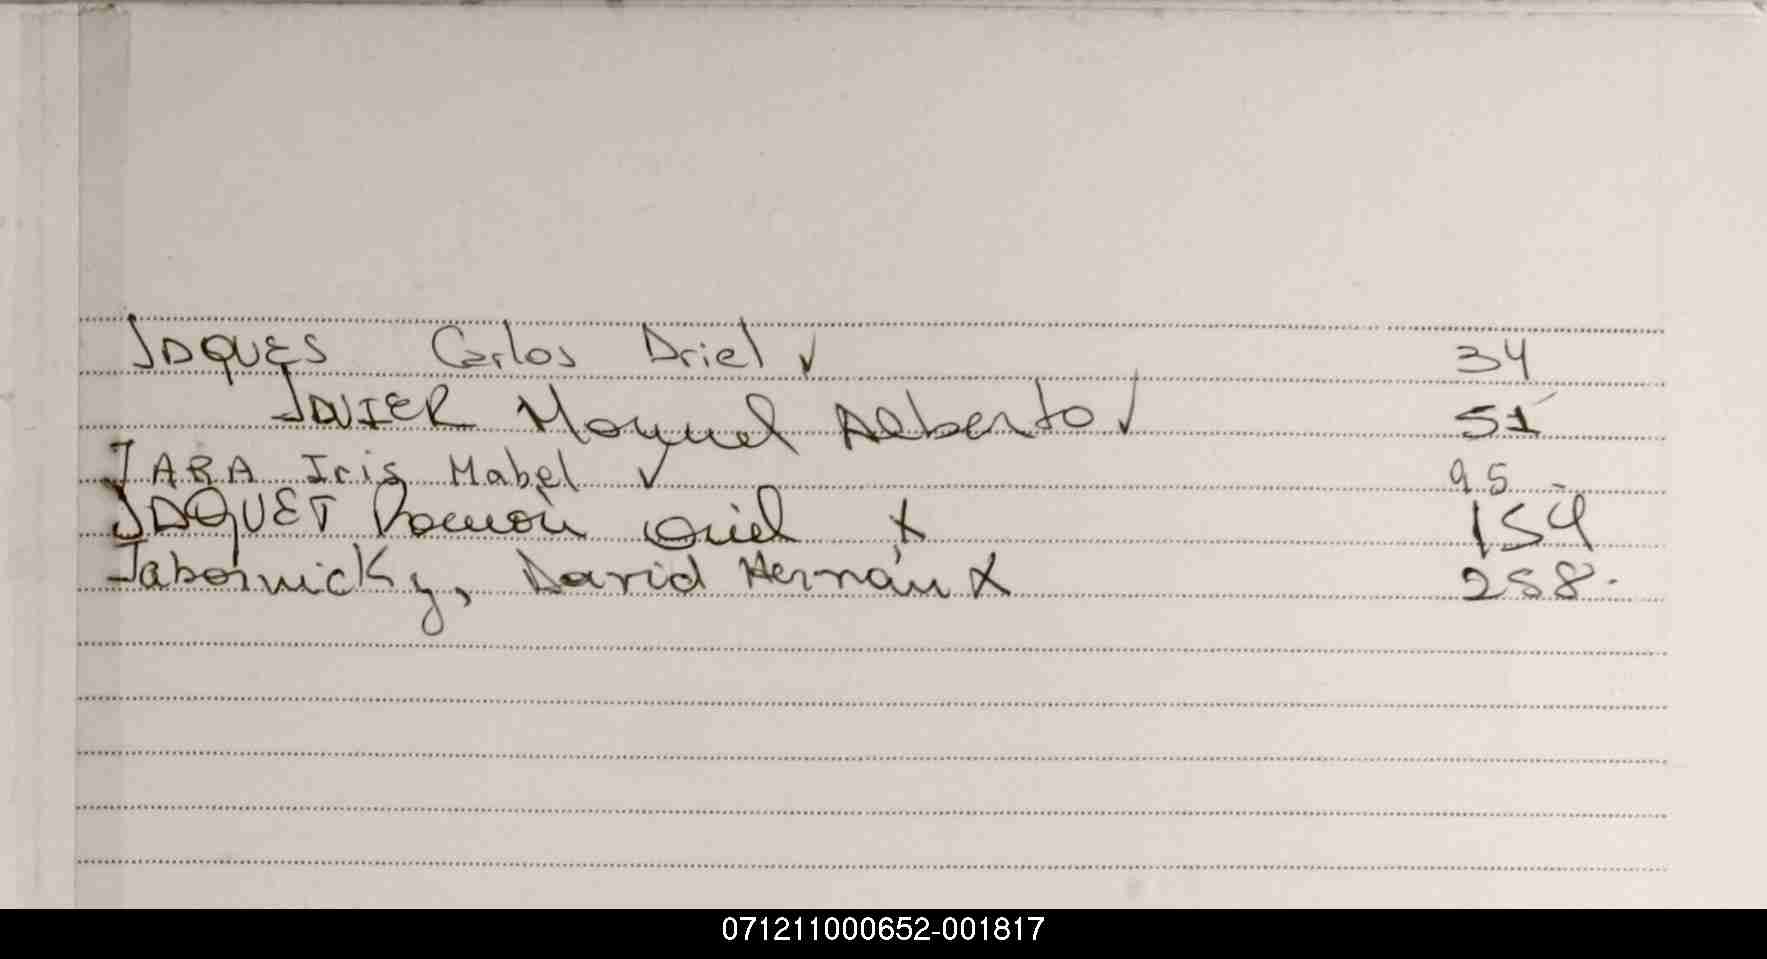 JAQUES Carlos Ariel ✓ 34
JAVIER Manuel Alberto ✓ 51
JARA Iris Mabel ✓ 95
JAQUET Ramón Oriel x 154
Jabornicky, David Hernán X 258.
071211000652-001817